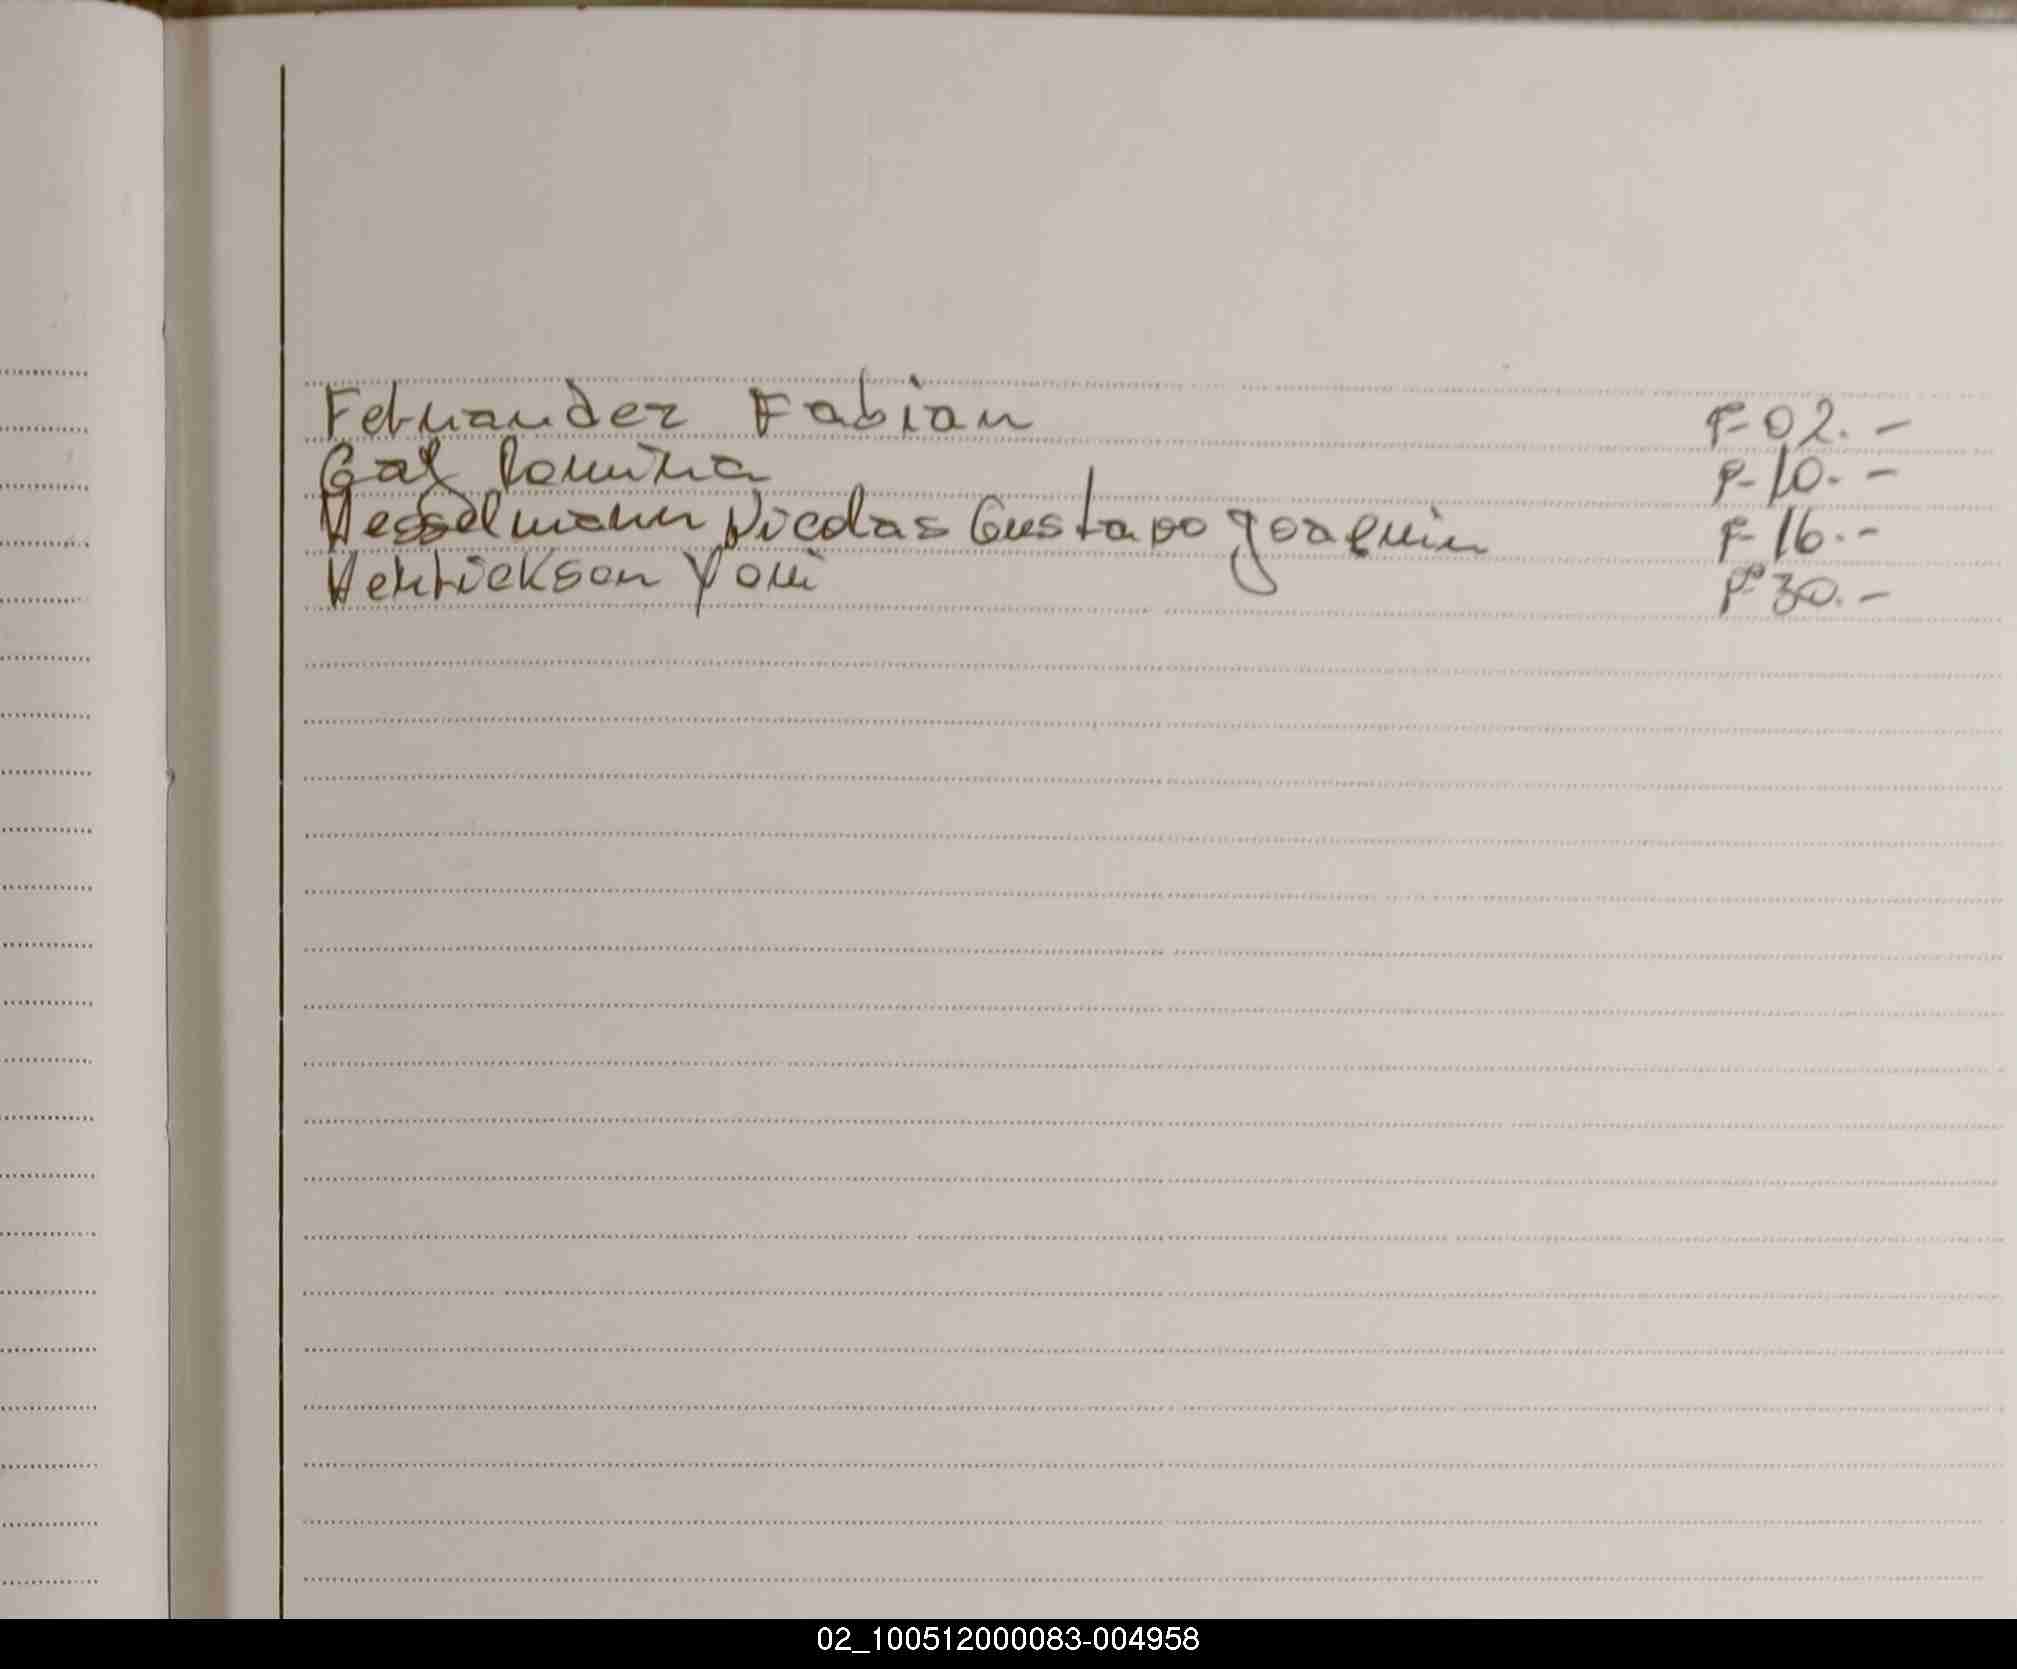 Fernandez Fabian F-02.-
Gal Romina F-10.-
Hesselmann Nicolas Gustavo Joaquin F-16.-
Henrickson Yoni F-30.-
02_100512000083-004958